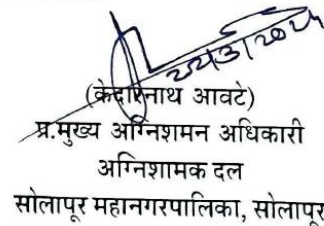 (केदारनाथ आवटे)
प्र.मुख्य अग्निशमन अधिकारी
अग्निशामक दल
सोलापूर महानगरपालिका, सोलापूर